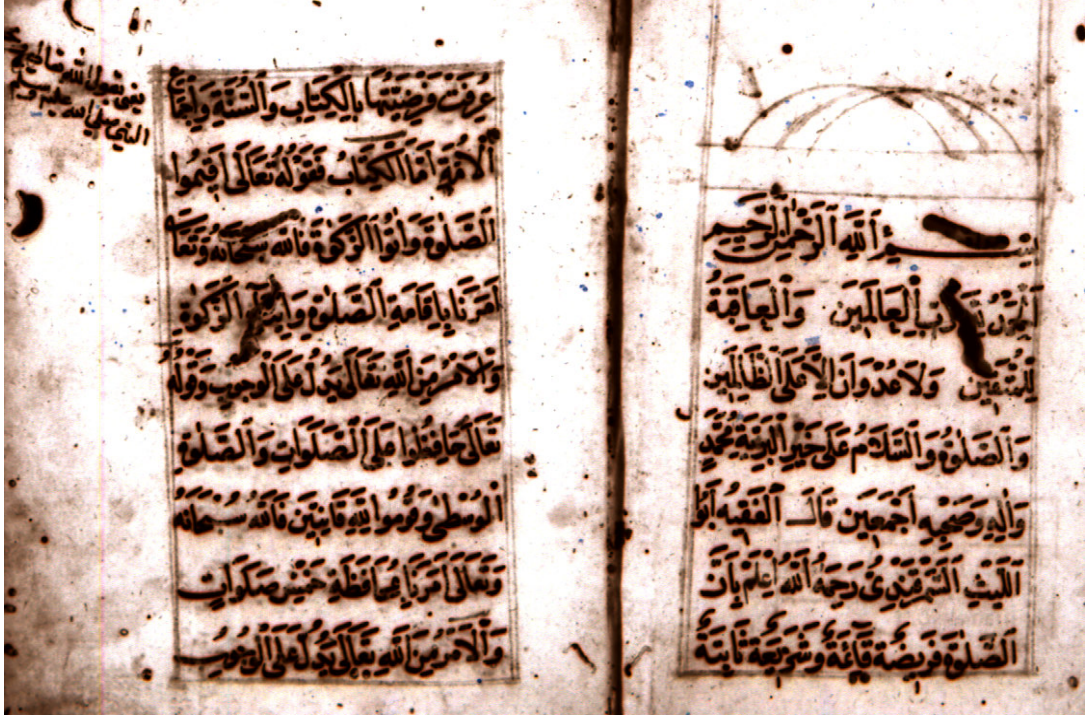 بِسْمِ اللهِ الرَّحْمٰنِ الرَّحِيمِ
اَلْحَمْدُ لِلّٰهِ رَبِّ الْعَالَمِينَ وَالْعَاقِبَةُ
لِلْمُتَّقِينَ وَلَا عُدْوَانَ اِلَّا عَلَى الظَّالِمِينَ
وَالصَّلٰوةُ وَالسَّلَامُ عَلٰى خَيْرِ الْبَرِيَّةِ مُحَمَّدٍ
وَاٰلِهِ وَصَحْبِهِ اَجْمَعِينَ قَالَ الْفَقِيهُ اَبُو
اللَّيْثِ السَّمَرْقَنْدِىُّ رَحِمَهُ اللهُ اِعْلَمْ بِاَنَّ
الصَّلٰوةَ فَرِيضَةٌ قَائِمَةٌ وَشَرِيعَةٌ ثَابِتَةٌ
عُرِفَتْ فَرْضِيَّتُهَا بِالْكِتَابِ وَالسُّنَّةِ وَاِجْمَاعِ
الْاُمَّةِ اَمَّا الْكِتَابُ فَقَوْلُهُ تَعَالٰى اَقِيمُوا
الصَّلٰوةَ وَاٰتُوا الزَّكٰوةَ فَاللهُ سُبْحَانَهُ وَتَعَالٰى
اَمَرَنَا بِاِقَامَةِ الصَّلٰوةِ وَاِيتَاءِ الزَّكٰوةِ
وَالْاَمْرُ مِنَ اللهِ تَعَالٰى يَدُلُّ عَلَى الْوُجُوبِ وَقَوْلُهُ
تَعَالٰى حَافِظُوا عَلَى الصَّلَوَاتِ وَالصَّلٰوةِ
الْوُسْطٰى وَقُومُوا لِلّٰهِ قَانِتِينَ فَاللهُ سُبْحَانَهُ
وَتَعَالٰى اَمَرَنَا بِمُحَافَظَةِ خَمْسِ صَلَوَاتٍ
وَالْاَمْرُ مِنَ اللهِ تَعَالٰى يَدُلُّ عَلَى الْوُجُوبِ
النبي صلى الله عليه وسلم